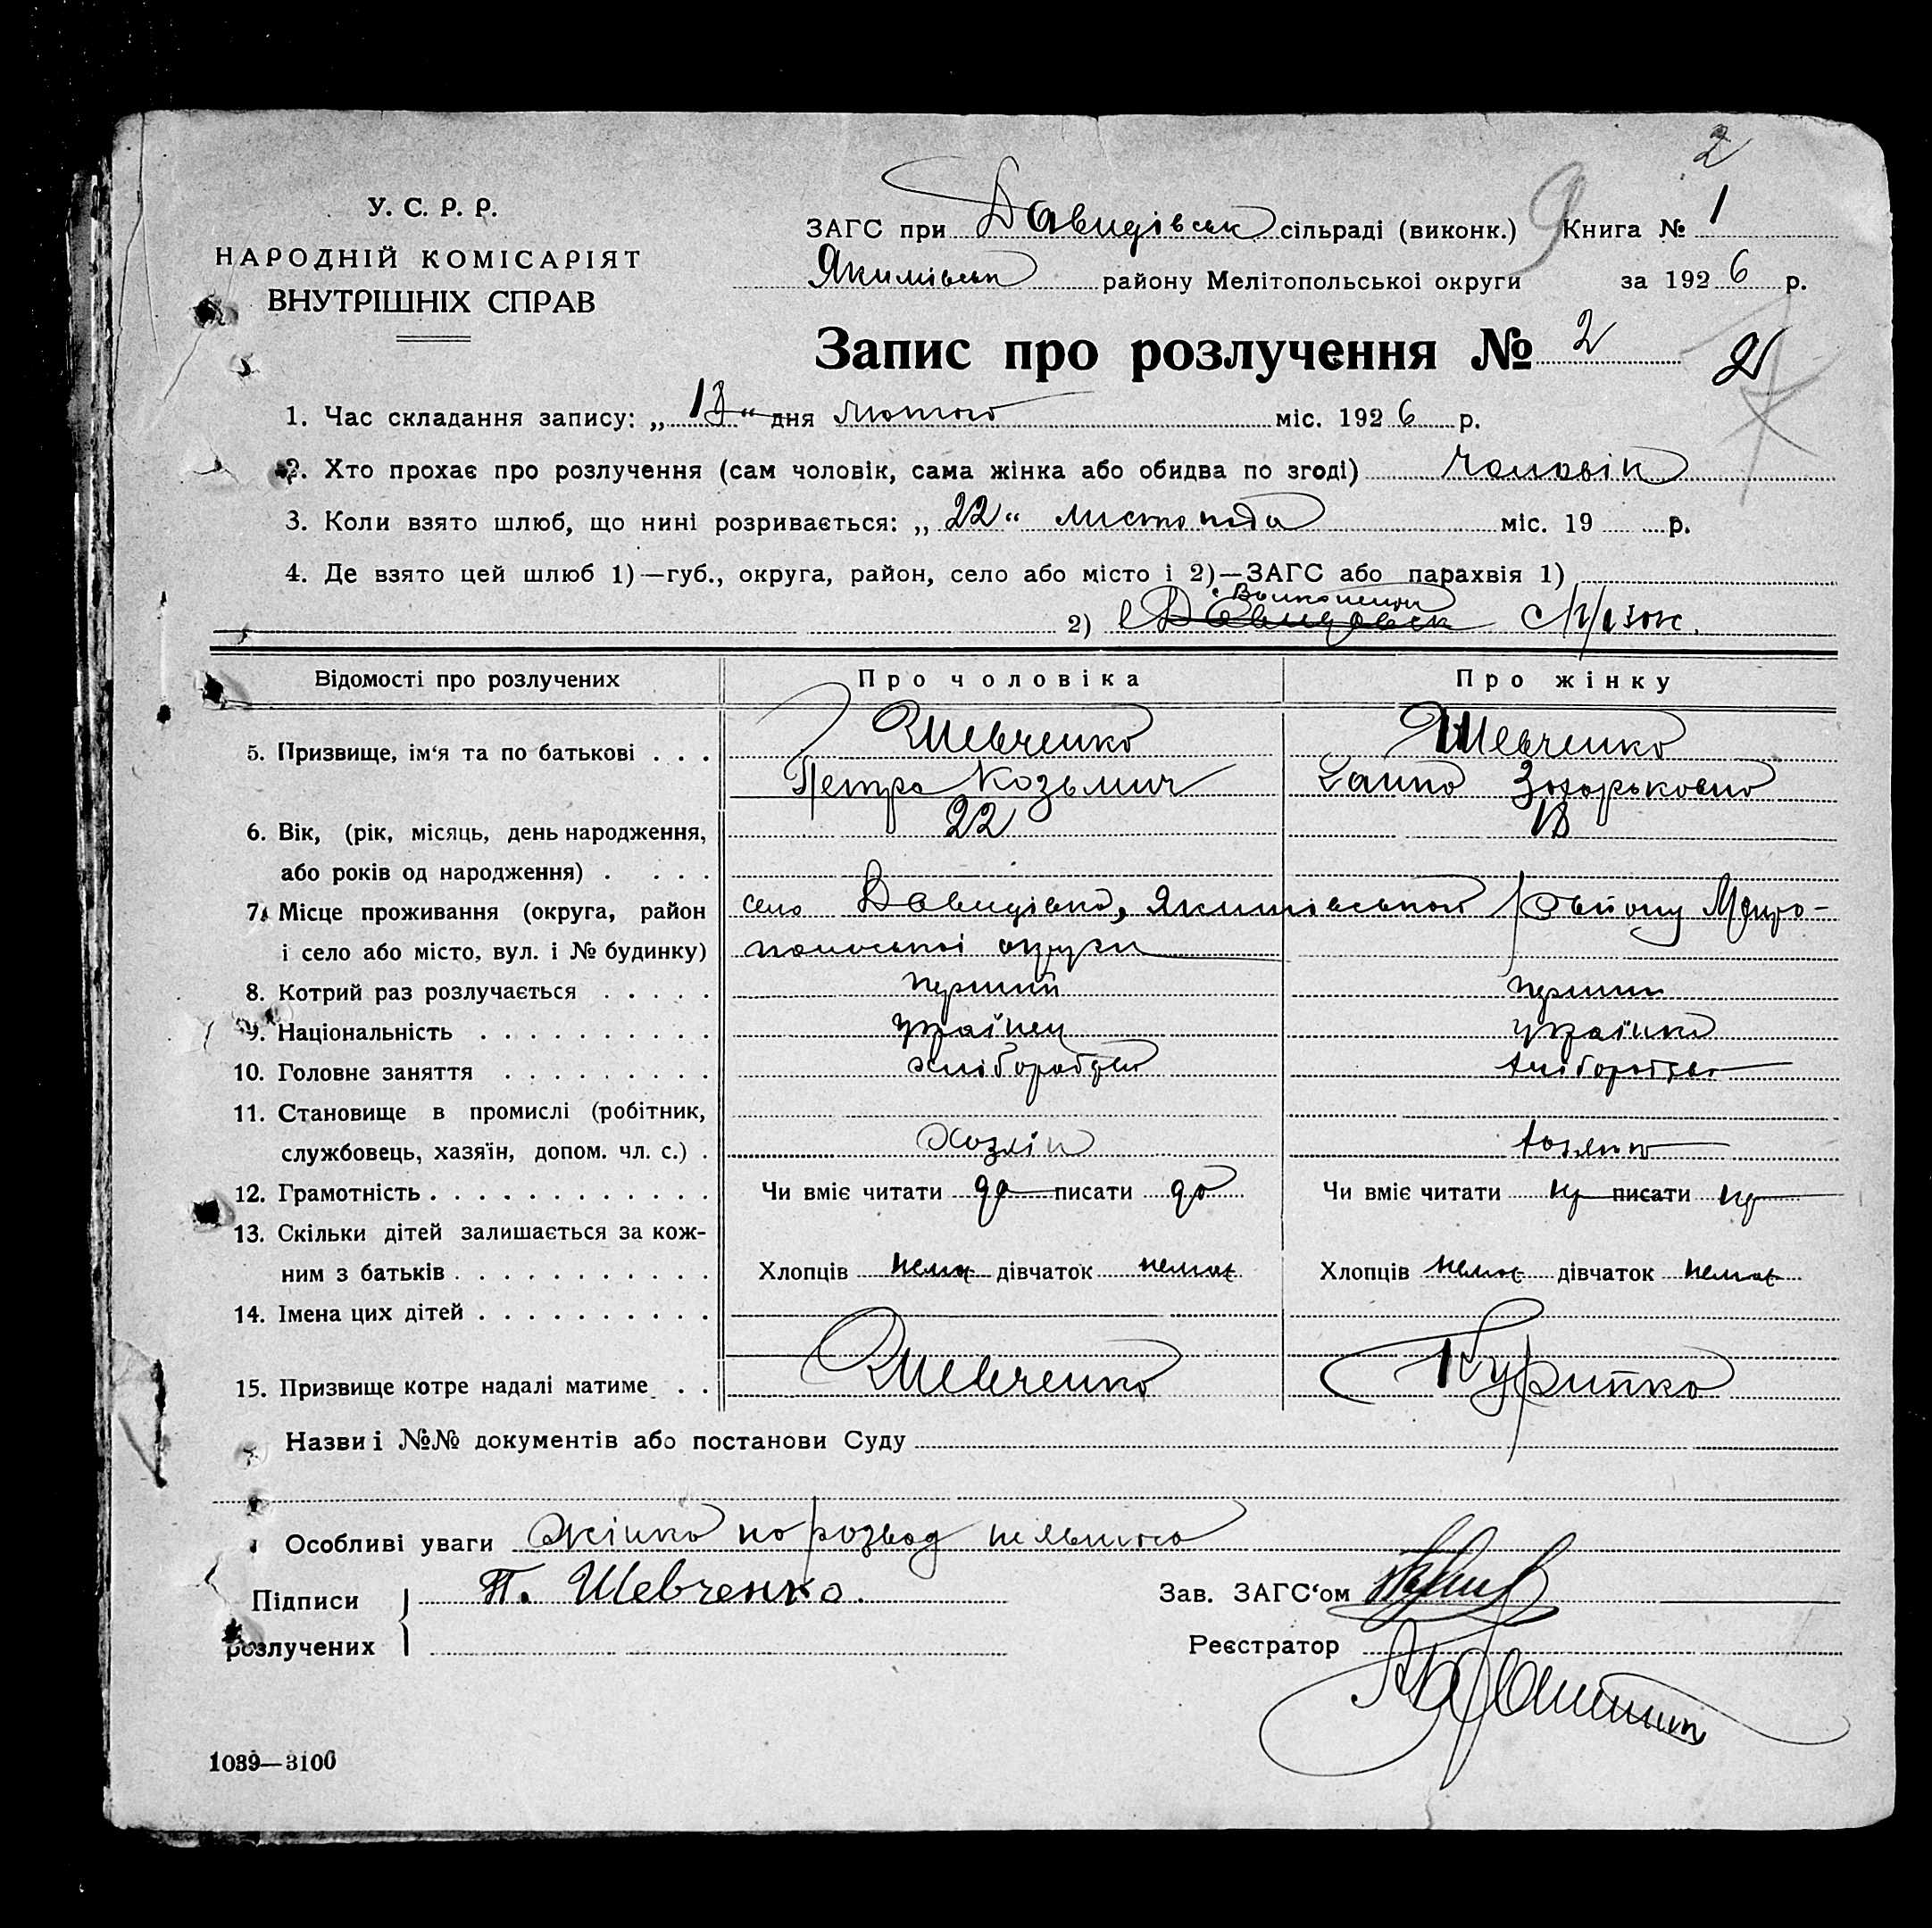 2
У. С. Р. Р.
НАРОДНІЙ КОМІСАРІЯТ
ВНУТРІШНІХ СПРАВ
ЗАГС при Давидівськ сільраді (виконк.) 9 Книга № 1
Якимівськ району Мелітопольської округи за 1926 р.
Запис про розлучення № 2
2
1. Час складання запису: „13“ дня лютого міс. 1926 р.
2. Хто прохає про розлучення (сам чоловік, сама жінка або обидва по згоді) чоловік
3. Коли взято шлюб, що нині розривається: „22“ листопада міс. 19 р.
4. Де взято цей шлюб 1)—губ., округа, район, село або місто і 2)—ЗАГС або парахвія 1)
2) Давидовск
Відомості про розлучених Про чоловіка Про жінку
5. Призвище, ім‘я та по батькові . . . Шевченко Шевченко
Петро Козьмич Ганна
6. Вік, (рік, місяць, день народження, 22 18
або років од народження) . . . .
7. Місце проживання (округа, район село Давидівка, Якимівського району Меліто-
і село або місто, вул. і № будинку) польської округи
8. Котрий раз розлучається . . . . . перший перший
9. Національність . . . . . . . . . . українец українка
10. Головне заняття . . . . . . . . . хліборобство хліборобство
11. Становище в промислі (робітник,
службовець, хазяїн, допом. чл. с.) . Хозяін хозяйка
12. Грамотність . . . . . . . . . . . . Чи вміє читати да писати да Чи вміє читати ні писати ні
13. Скільки дітей залишається за кож-
ним з батьків . . . . . . . . . . . Хлопців немає дівчаток немає Хлопців немає дівчаток немає
14. Імена цих дітей . . . . . . . . . .
15. Призвище котре надалі матиме . . Шевченко Курипко
Назви і №№ документів або постанови Суду
Особливі уваги Жінка на розвод не явилась
Підписи П. Шевченко. Зав. ЗАГС‘ом
розлучених Реєстратор
1039—3100